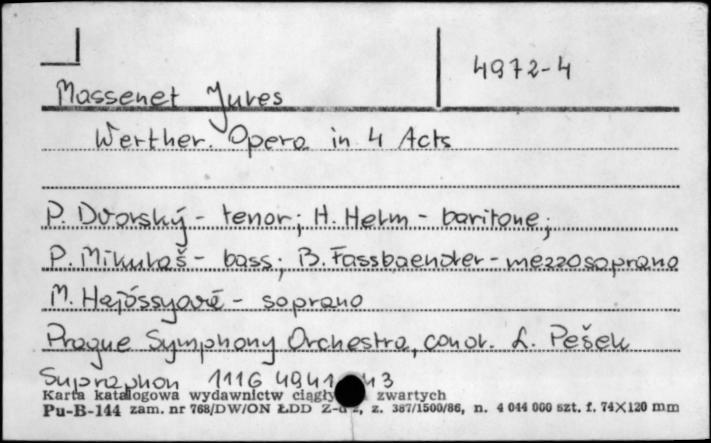 4972-4
Massenet Jules
Werther. Opera in 4 Acts
P. Dvorský - tenor; H. Helm - baritone;
P. Mikuláš - bass; B. Fassbaender - mezzosoprano
M. Hajóssyová - soprano
Prague Symphony Orchestra, cond. L. Pešek
Supraphon 1116 4941 43
Karta katalogowa wydawnictw ciągły zwartych
Pu-B-144 zam. nr 768/DW/ON ŁDD z. 387/1500/86, n. 4 044 000 szt. f. 74X120 mm